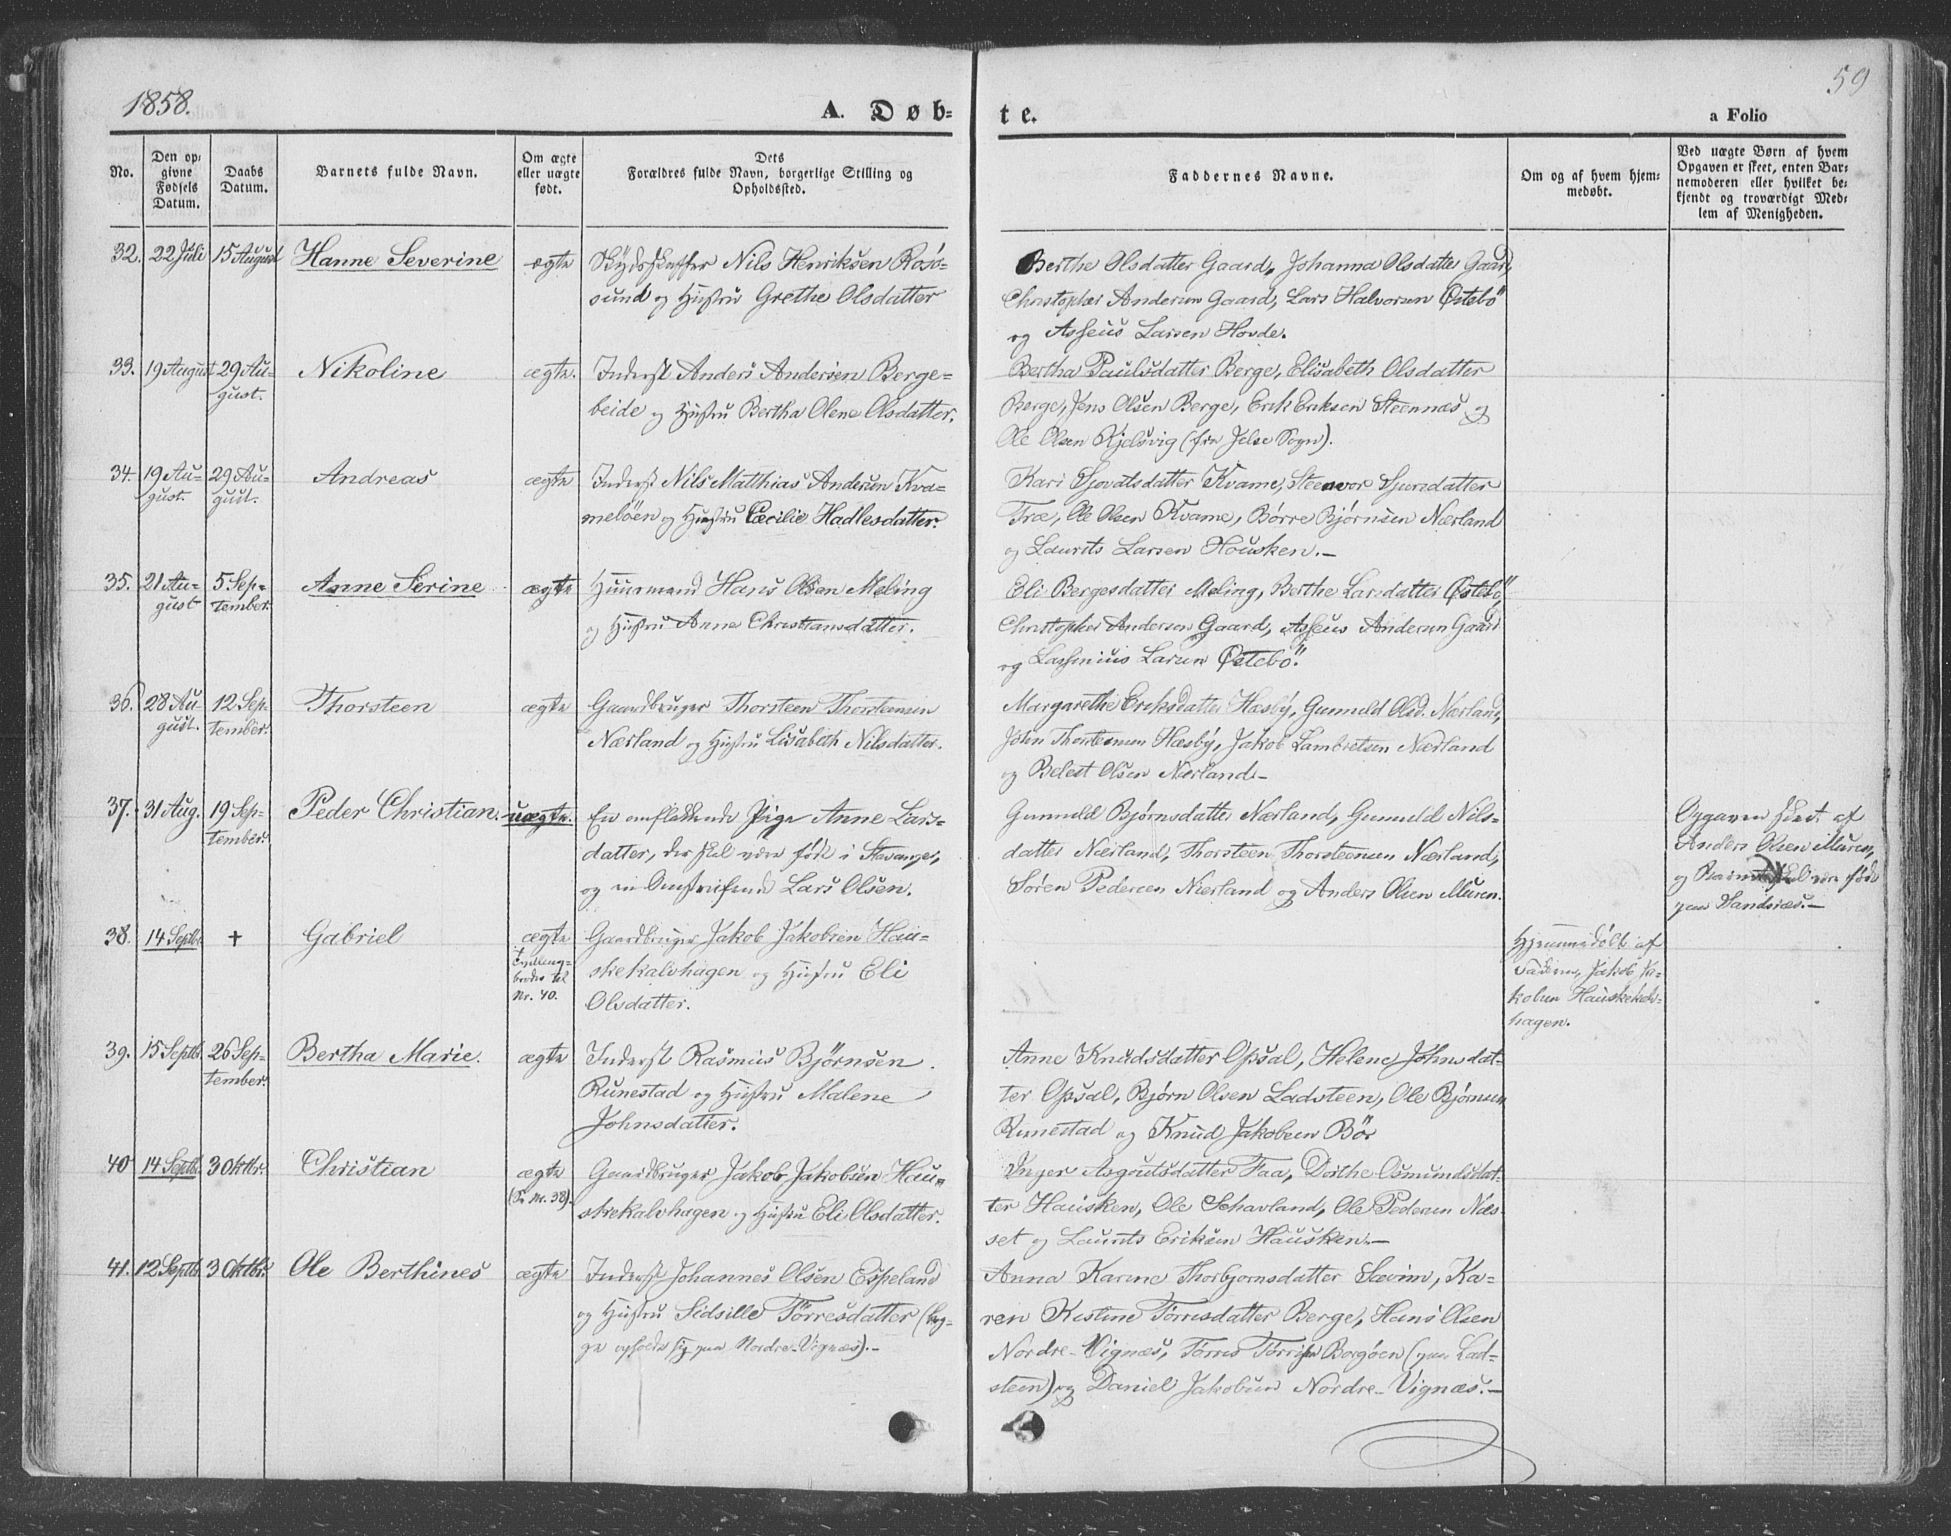 1858.
A. Døb-
te.
59
a Folio
No.
Den op-
givne
Fødsels
Datum.
Daabs
Datum.
Barnets fulde Navn.
Om ægte
eller uægte
født.
Dets
Forældres fulde Navn, borgerlige Stilling og
Opholdssted.
Faddernes Navne.
Om og af hvem hjem-
medøbt.
Ved uægte Børn af hvem
Opgaven er skeet, enten Bar-
nemoderen eller hvilket be-
kjendt og troværdigt Med-
lem af Menigheden.
32. 22 Juli 15 August Hanne Severine ægte Skydsskaffer Nils Henriksen Røsø-
sund og Hustru Grethe Olsdatter
Berthe Olsdatter Gaard, Johanna Olsdatter Gaard,
Christopher Andersen Gaard, Lars Halvorsen Østebö
og Asseus Larsen Hovde.
33. 19 August 29 Au-
gust. Nikoline ægte. Inderst Anders Andersen Berge-
beide og Hustru Bertha Olene Olsdatter.
Bertha Paulsdatter Berge, Elisabeth Olsdatter
Berge, Jens Olsen Berge, Erik Eriksen Steennæs og
Ole Olsen Kjølsvig (fra Jelse Sogn).
34. 19 Au-
gust. 29 Au-
gust. Andreas ægte Inderst Nils Matthias Andersen Kva-
meböen og Hustru Cæcilie Hadlesdatter.
Kari Sjovatsdatter Kvame, Steenvor Sjursdatter
Træ, Ole Olsen Kvame, Børre Bjørnsen Nærland
og Laurits Larsen Housken.-
35. 21 Au-
gust 5 Sep-
tember. Anne Serine ægte Huusmand Hans Olsen Meling
og Hustru Anne Christiansdatter.
Eli Bergesdatter Meling, Berthe Larsdatter Østebö,
Christopher Andersen Gaard, Asseus Andersen Gaard
og Larsenius Larsen Østebö.
36. 28 Au-
gust. 12 Sep-
tember. Thorsteen ægte Gaardbruger Thorsteen Thorsteensen
Nærland og Hustru Lisabeth Nilsdatter.
Margarethe Eriksdatter Hæsby, Gunneld Olsd. Nærland,
John Thorsteensen Hæsby, Jakob Lambretsen Nærland
og Belest Olsen Nærland.-
37. 31 Aug. 19 Sep-
tember. Peder Christian. uægte. En omflakkende Pige Anne Lars-
datter, der skal være født i Stavanger,
og en Omstreifende Lars Olsen.
Gunneld Bjørnsdatter Nærland, Gunneld Nils-
datter Nærland, Thorsteen Thorsteensen Nærland,
Søren Pedersen Nærland og Anders Olsen Muren.
Opgaven skeet af
Anders Olsen Muren,
og Barnet skal være født
paa Sandnæs.-
38. 14 Septb. † Gabriel ægte
Tvilling-
broder til
Nr. 40. Gaardbruger Jakob Jakobsen Hau-
skekalvhagen og Hustru Eli
Olsdatter.
Hjemmedöbt af
Faderen, Jakob Ja-
kobsen Hauskekalv-
hagen.
39. 15 Septb. 26 Sep-
tember. Bertha Marie. ægte Inderst Rasmus Bjørnsen
Runestad og Hustru Malene
Johnsdatter.
Anne Knudsdatter Opsal, Helene Johnsdat-
ter Opsal, Bjørn Olsen Ladsteen, Ole Bjørnsen
Runestad og Knud Jakobsen Bör
40 14 Septb. 3 Oktbr. Christian ægte
(Se Nr. 38). Gaardbruger Jakob Jakobsen Hau-
skekalvhagen og Hustru Eli Olsdatter.
Inger Asgoutsdatter Faa, Dorthe Osmundsdat-
ter Hausken, Ole Schavland, Ole Pedersen Næs-
set og Laurits Eriksen Hausken.-
41. 12 Septb. 3 Oktbr. Ole Berthines ægte Inderst Johannes Olsen Espeland
og Hustru Sidsille Törresdatter (beg-
ge opholde sig paa Nordre-Vignæs).-
Anna Karine Thorbjornsdatter Sævim, Ka-
ren Kistine Törrisdatter Berge, Hans Olsen
Nordre-Vignæs, Törris Törrisen Borgøen (paa Lad-
steen) og Daniel Jakobsen Nordre-Vignæs.-